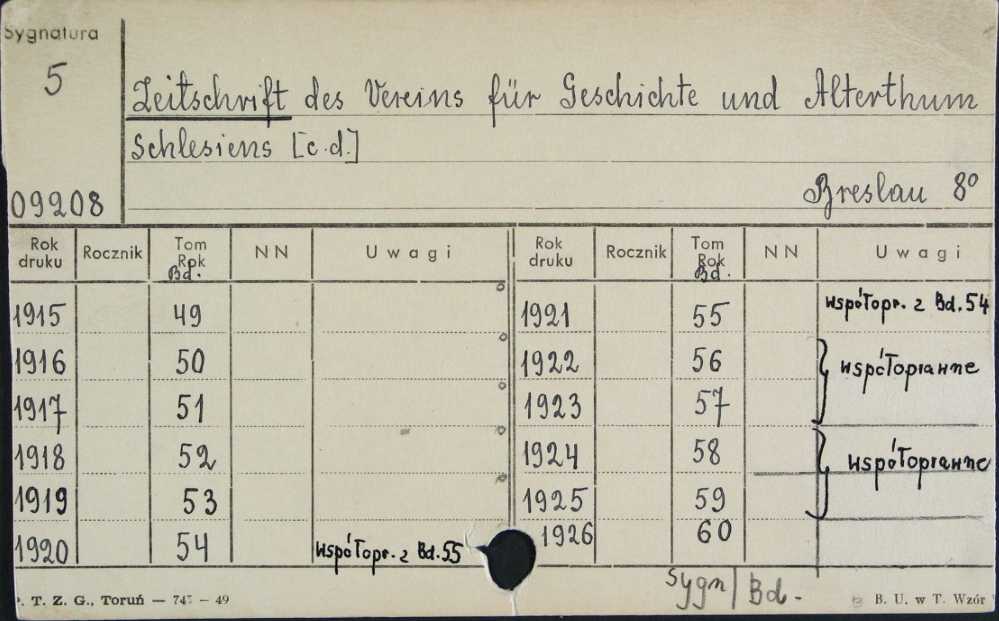 Sygnatura
5
Zeitschrift des Vereins für Geschichte und Alterthum
Schlesiens [c.d.]
09208
Breslau 8°
Rok druku Rocznik Tom Rok Bd. NN Uwagi Rok druku Rocznik Tom Rok Bd. NN Uwagi
1915 49 1921 55 współopr. z Bd. 54
1916 50 1922 56 współoprawne
1917 51 1923 57
1918 52 1924 58 współoprawne
1919 53 1925 59
1920 54 współopr. z Bd. 55 1926 60
Sygn | Bd.-
T. Z. G., Toruń — 49
B. U. w T. Wzór